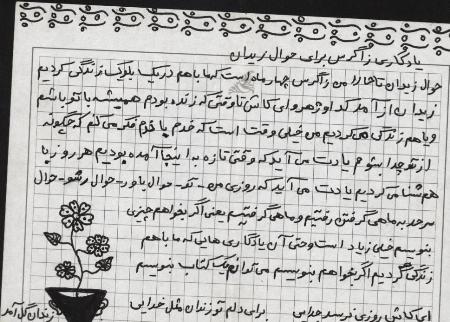 یادگاری زاگرس برای جوال زیدان
جوال زیدان تا حالا من زاگرس چهار ماه است که ما با هم در یک بلوک زندگی کردیم
زیدان از آمد کد اوزهر و ای کاش تا وقتی که زنده بودم همیشه با تو باشم
و با هم زندگی می کردیم من خیلی وقت است که خودم با خودم فکر می کنم که چگونه
از تو جدا بشوم یادت می آید که وقتی تازه به اینجا آمده بودیم هر روز با
هم شنا می کردیم یادت می آید که روزی من - تو - جوال یاور - جوال رشو - جوال
سرحد به ماهی گرفتن رفتیم و ماهی گرفتیم یعنی اگر بخواهم چیزی
بنویسم خیلی زیاد است و حتی آن یادگاری هایی که ما با هم
زندگی کردیم اگر بخواهم بنویسیم می توانم یک کتاب بنویسم
ای کاش روزی نرسد جدایی برای دلم تو زندان مثل خدایی
زندان گل آمد